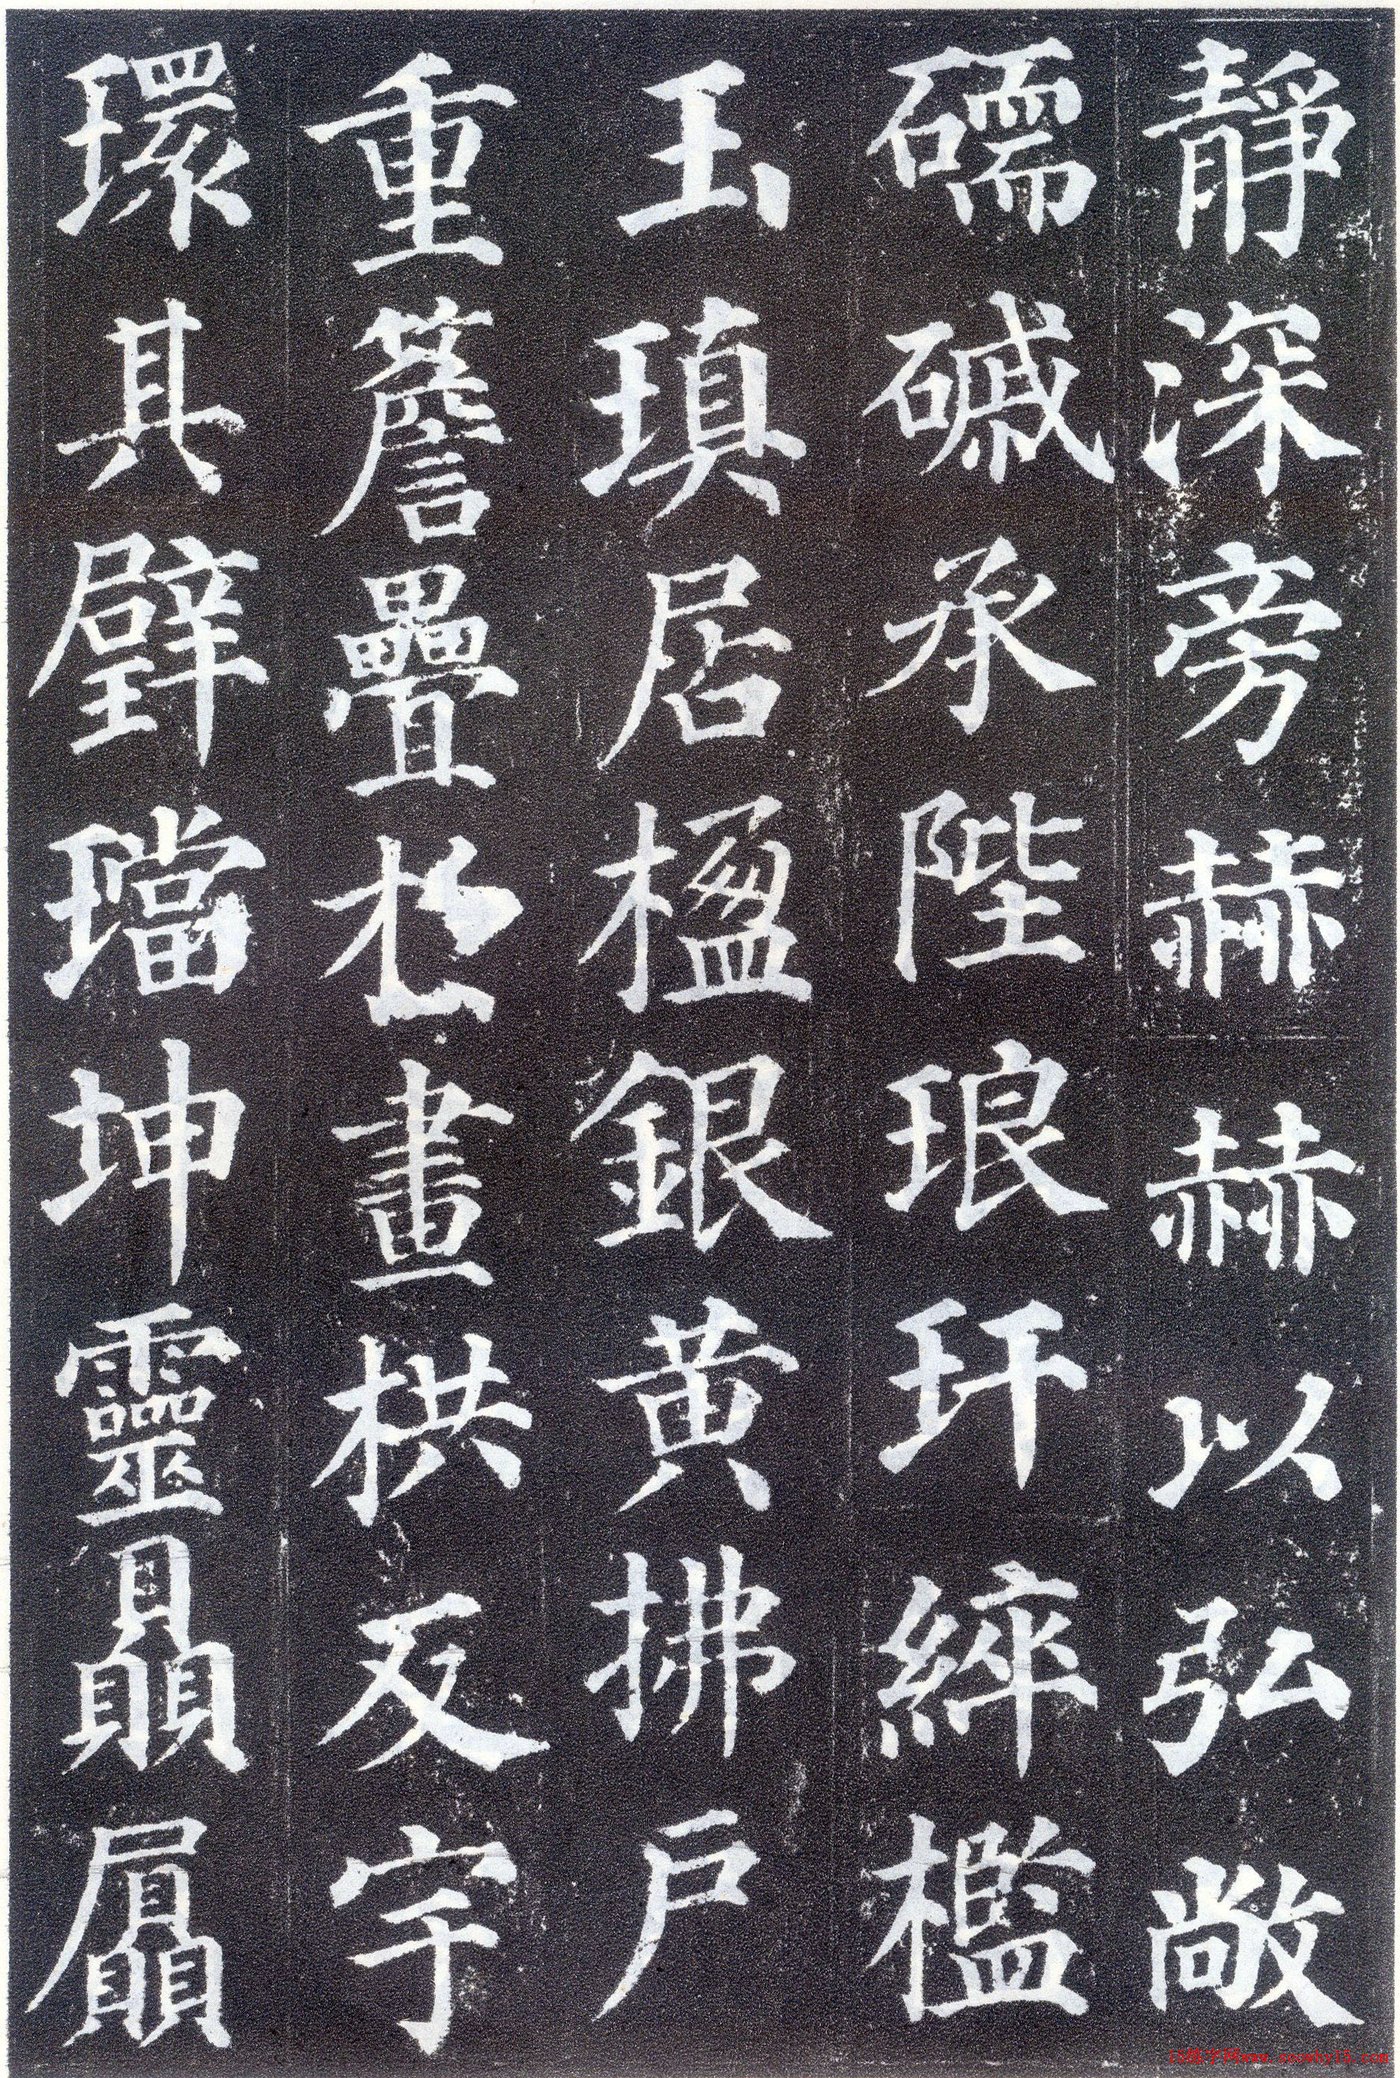 靜深旁赫赫以弘敞
礝磩承陛琅玕綷檻
玉瑱居楹銀黃拂戶
重簷疊栱畫栱反宇
環其璧璫坤靈贔屭